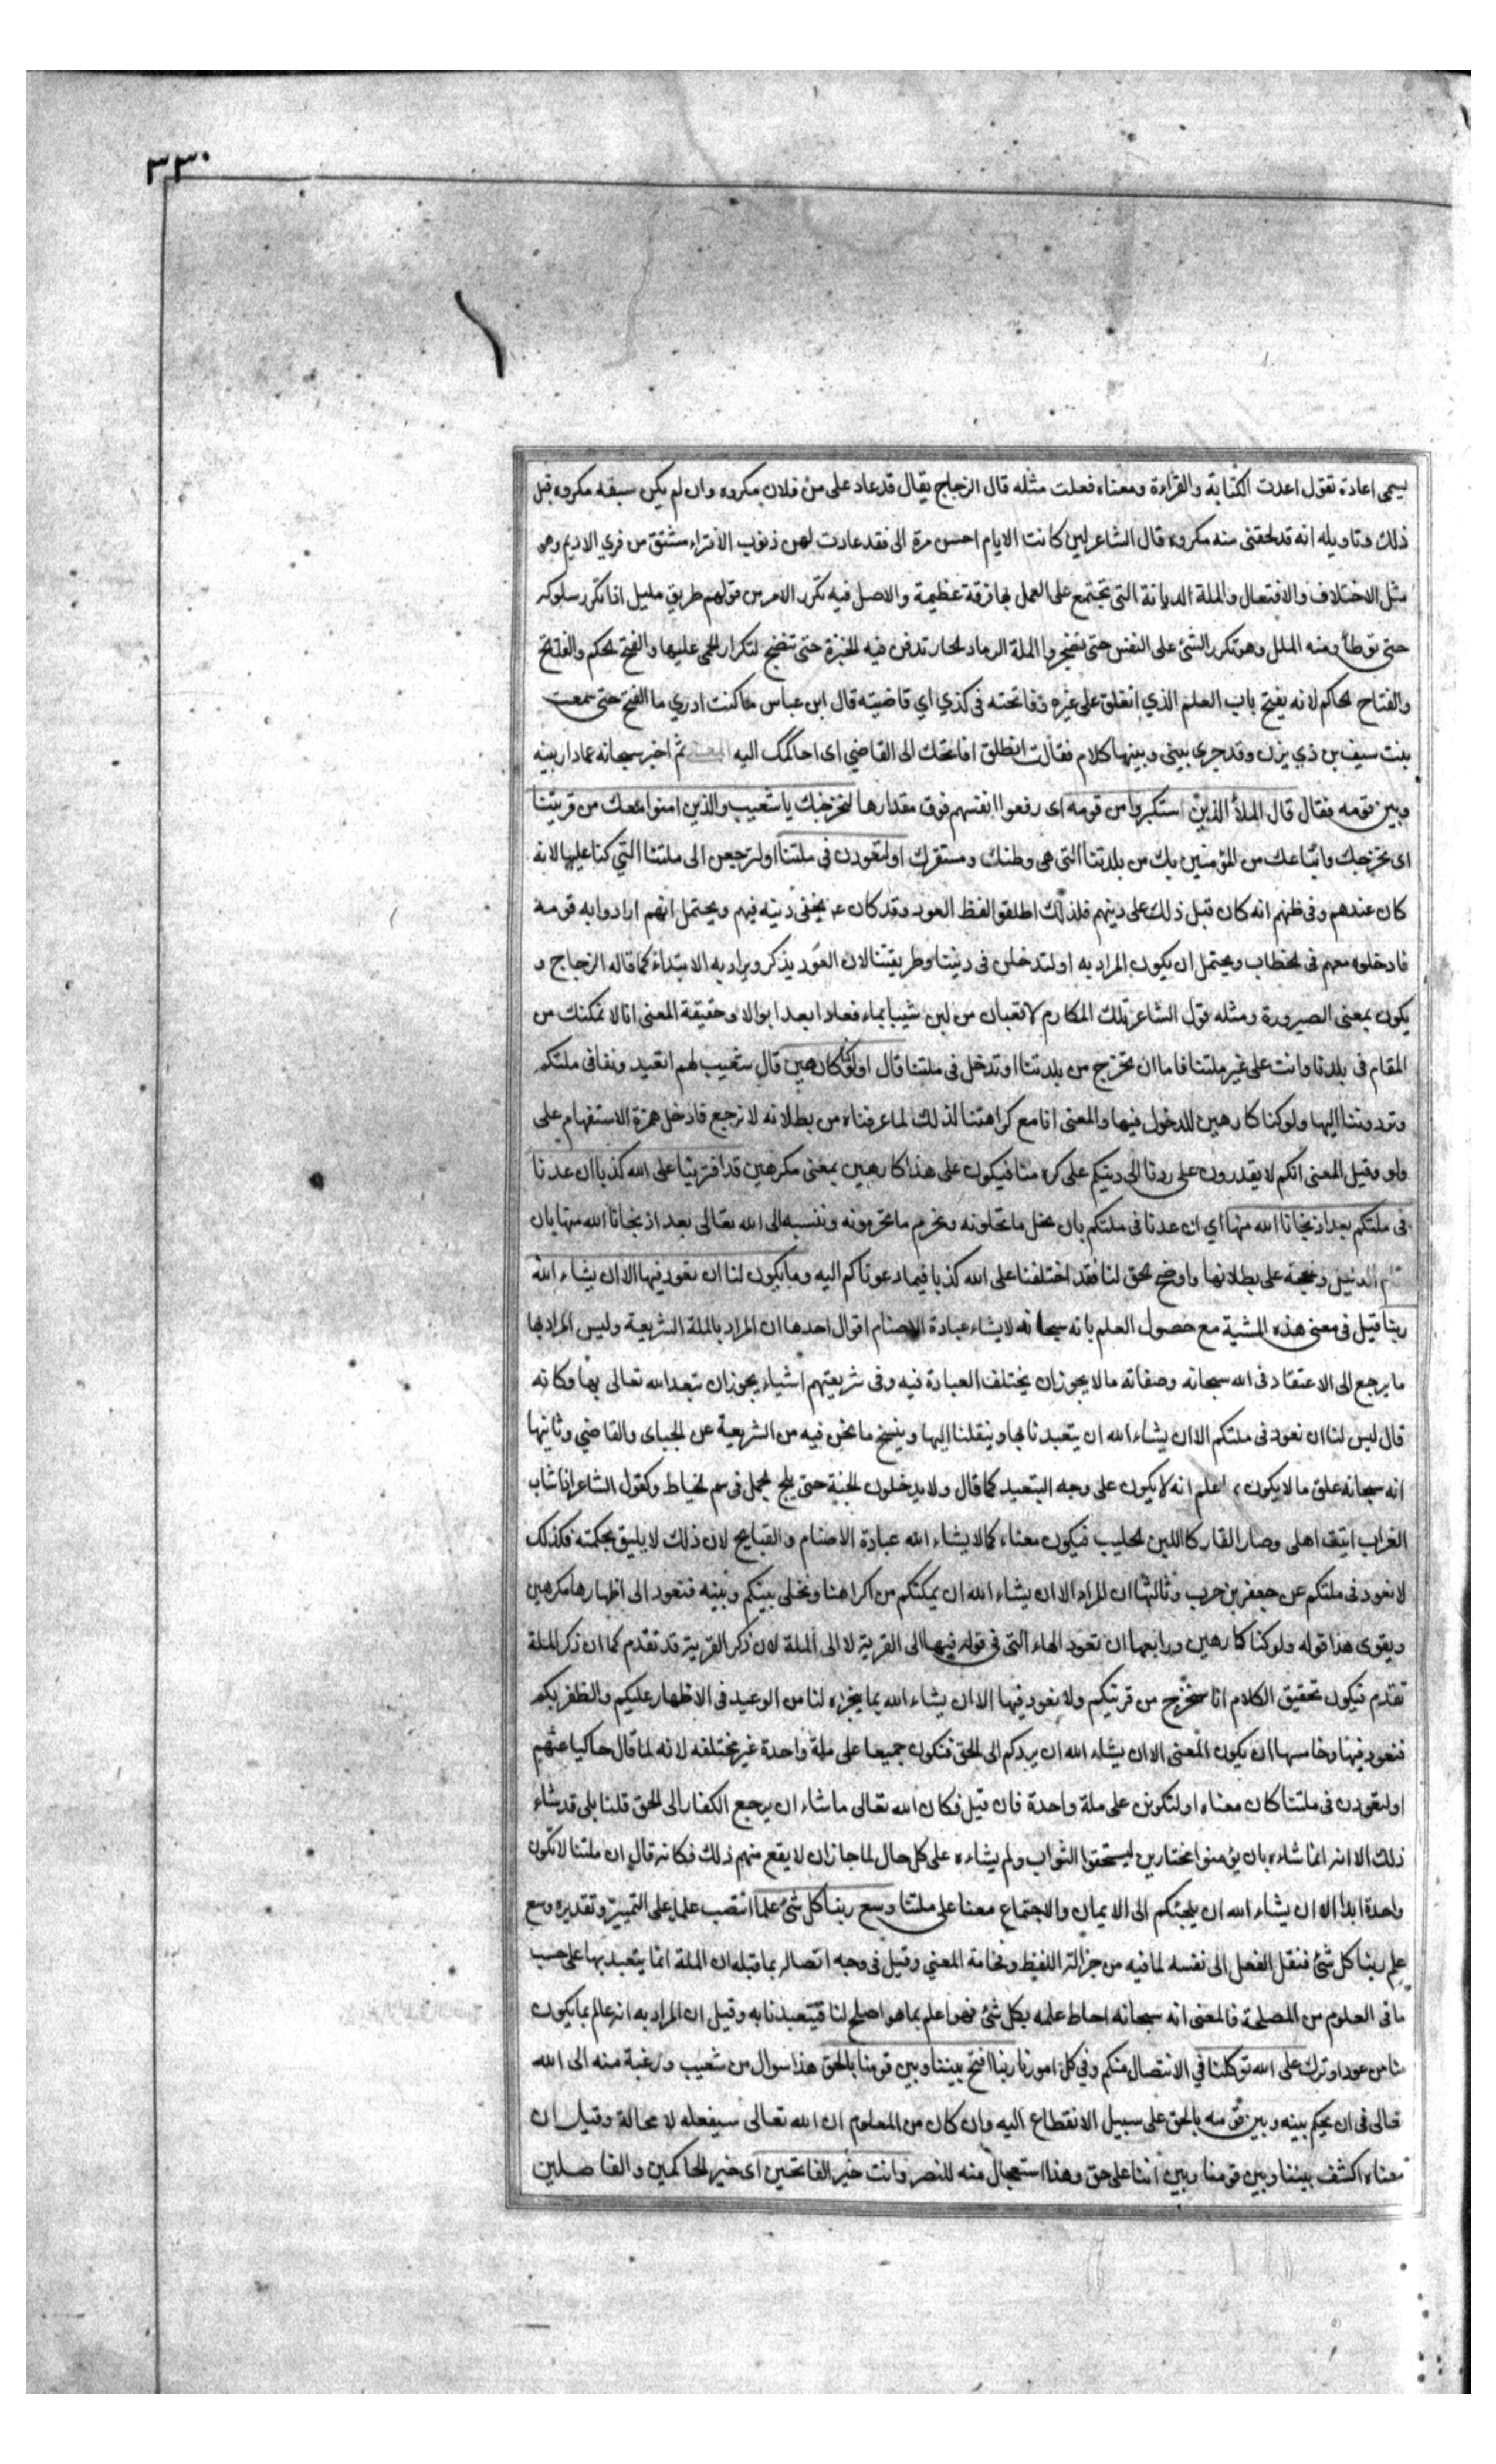 ٣٣٠
يسمى اعادة تقول اعدت الكتابة والقراءة ومعناه فعلت مثله قال الزجاج يقال قد عاد على من فلان مكروه وان لم يكن سبقه مكروه قبل
ذلك وتاويله انه قد لحقنى منه مكروه قال الشاعر لين كانت الايام احسن مرة الى فقد عادت لهن ذنوب الافتراء مشتق من فري الاديم وهو
مثل الاختلاف والافتعال والملة الديانة التى تجتمع على العمل بها فرقة عظيمة والاصل فيه تكرر الامر من قولهم طريق مليل اذا تكرر سلوكه
حتى توطأ ومنه الملل وهو تكرر الشئ على النفس حتى تضجر والملة الرماد الحار تدفن فيه الخبزة حتى تنضج لتكرار الحمى عليها والفتح الحكم والفاتح
والفتاح الحاكم لانه يفتح باب العلم الذي انغلق على غيره وفاتحته فى كذي اي قاضيته قال ابن عباس ما كنت ادري ما الفتح حتى سمعت
بنت سيف بن ذي يزن وقد جرى بينى وبينها كلام فقالت انطلق افاتحك الى القاضي اى احاكمك اليه ثم اخبر سبحانه عما دار بينه
وبين قومه فقال قال الملأ الذين استكبروا من قومه اى رفعوا انفسهم فوق مقدارها لنخرجنك يا شعيب والذين امنوا معك من قريتنا
اى نخرجك واتباعك من المؤمنين بك من بلدتنا التى هى وطنك ومستقرك او لتعودن فى ملتنا او لترجعن الى ملتنا التي كنا عليها لانه
كان عندهم وفى ظنهم انه كان قبل ذلك على دينهم فلذلك اطلقوا لفظ العود وقد كان ع يخفى دينه فيهم ويحتمل انهم ارادوا به قومه
فادخلوه معهم فى الخطاب ويحتمل ان يكون المراد به او لتدخلن فى ديننا وطريقتنا لان العود يذكر ويراد به الابتداء كما قاله الزجاج و
يكون بمعنى الصيرورة ومثله قول الشاعر تلك المكارم لا قعبان من لبن شيبا بماء فعادا بعد ابوالا وحقيقة المعنى انا لا نمكنك من
المقام فى بلدنا وانت على غير ملتنا فاما ان تخرج من بلدتنا او تدخل فى ملتنا قال اولو كنا كارهين قال شعيب لهم اتعيدوننا فى ملتكم
وتردوننا اليها ولو كنا كارهين للدخول فيها والمعنى انا مع كراهتنا لذلك لما عرفناه من بطلانه لا نرجع فادخل همزة الاستفهام على
ولو وقيل المعنى انكم لا يقدرون على ردنا الى دينكم على كره منا فيكون على هذا كارهين بمعنى مكرهين قد افترينا على الله كذبا ان عدنا
فى ملتكم بعد اذ نجانا الله منها اي ان عدنا فى ملتكم بان نحل ما تحلونه ونحرم ما تحرمونه وننسبه الى الله تعالى بعد اذ نجانا الله منها بان
الدليل وحجة على بطلانها واوضح الحق لنا فقد اختلقنا على الله كذبا فيما دعوناكم اليه وما يكون لنا ان نعود فيها الا ان يشاء الله
ربنا قيل فى معنى هذه المشية مع حصول العلم بانه سبحانه لا يشاء عبادة الاصنام اقوال احدها ان المراد بالملة الشريعة وليس المراد بها
ما يرجع الى الاعتقاد فى الله سبحانه وصفاته ما لا يجوز ان يختلف العبادة فيه وفى شريعتهم اشياء يجوز ان يتعبد الله تعالى بها وكانه
قال ليس لنا ان نعود فى ملتكم الا ان يشاء الله ان يتعبدنا بها وينقلنا اليها وينسخ ما نحن فيه من الشريعة عن الجبائى والقاضي وثانيها
انه سبحانه علق ما لا يكون اعلم انه لا يكون على وجه التبعيد كما قال ولا يدخلون الجنة حتى يلج الجمل فى سم الخياط وكقول الشاعر اذا شاب
الغراب اتيت اهلى وصار القار كاللبن الحليب فيكون معناه كما لا يشاء الله عبادة الاصنام والقبايح لان ذلك لا يليق بحكمته فكذلك
لا نعود فى ملتكم عن جعفر بن حرب وثالثها ان المراد الا ان يشاء الله ان يمكنكم من اكراهنا ونخلى بينكم وبينه فنعود الى اظهارها مكرهين
ويقوى هذا قوله ولو كنا كارهين ورابعها ان تعود الهاء التى فى قوله فيها الى القرية لا الى الملة لان ذكر القرية قد تقدم كما ان ذكر الملة
تقدم فيكون تحقيق الكلام انا سنخرج من قريتكم ولا نعود فيها الا ان يشاء الله بما ينجزه لنا من الوعيد فى الاظهار عليكم والظفر بكم
فنعود فيها وخامسها ان يكون المعنى الا ان يشاء الله ان يردكم الى الحق فنكون جميعا على ملة واحدة غير مختلفه لانه لما قال حاكيا عنهم
او لتعودن فى ملتنا كان معناه او لتكونن على ملة واحدة فان قيل فكان الله تعالى ما شاء ان يرجع الكفار الى الحق قلنا بلى قد شاء
ذلك الا انه انما شاءه بان يؤمنوا مختارين ليستحقوا الثواب ولم يشاءه على كل حال لما جاز ان لا يقع منهم ذلك فكانه قال ان ملتنا لا تكون
واحدة ابدا الا ان يشاء الله ان يلجئكم الى الايمان والاجتماع معنا على ملتنا وسع ربنا كل شئ علما انتصب علما على التمييز وتقديره وسع
علم ربنا كل شئ فنقل الفعل الى نفسه لما فيه من جزالة اللفظ وفخامة المعني وقيل فى وجه اتصاله بما قبله ان الملة انما يتعبد بها على حسب
ما فى العلوم من المصلحة فالمعنى انه سبحانه احاط علمه بكل شئ فهو اعلم بما هو اصلح لنا فيتعبدنا به وقيل ان المراد به انه عالم بما يكون
منا من عود او ترك على الله توكلنا في الانتصال منكم وفي كل امورنا ربنا افتح بيننا وبين قومنا بالحق هذا سوال من شعيب ورغبة منه الى الله
تعالى فى ان يحكم بينه وبين قومه بالحق على سبيل الانقطاع اليه وان كان من المعلوم ان الله تعالى سيفعله لا محالة وقيل ان
معناه اكشف بيننا وبين قومنا وبين اننا على حق وهذا استعجال منه للنصر وانت خير الفاتحين اى خير الحاكمين والفاصلين